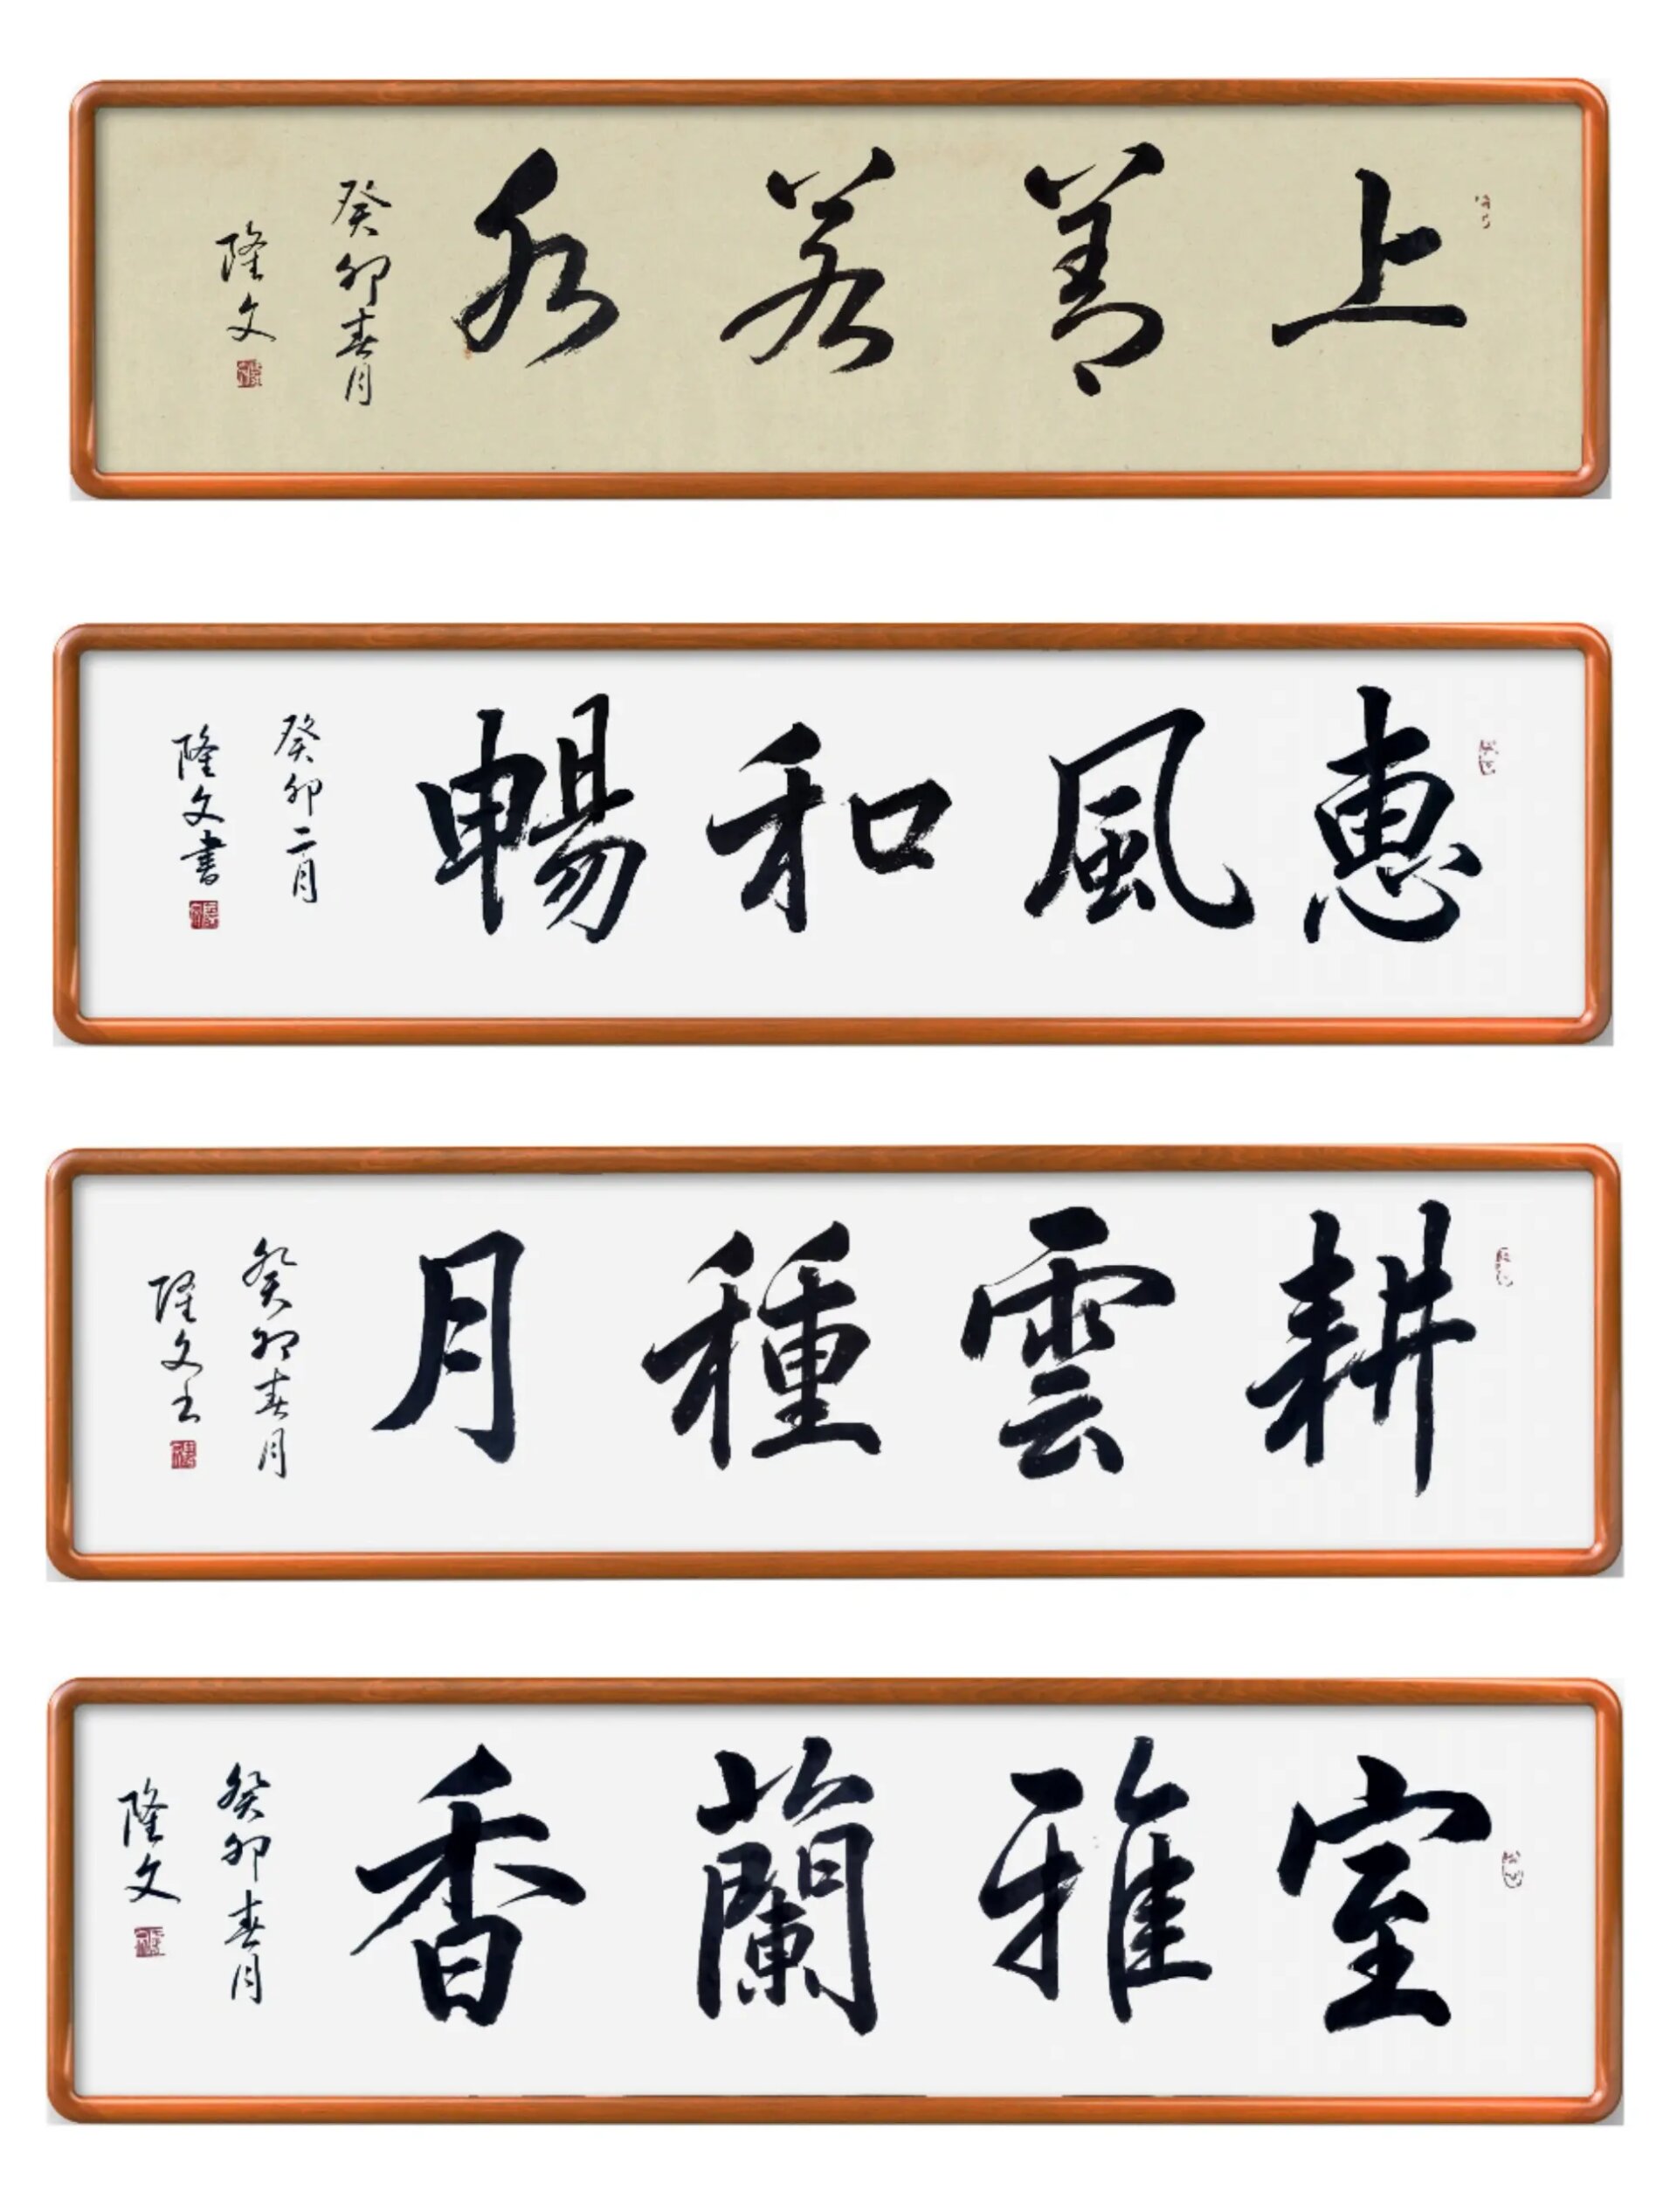 上善若水
癸卯春月
隆文
惠風和暢
癸卯二月
隆文書
耕雲種月
癸卯春月
隆文书
室雅蘭香
癸卯春月
隆文